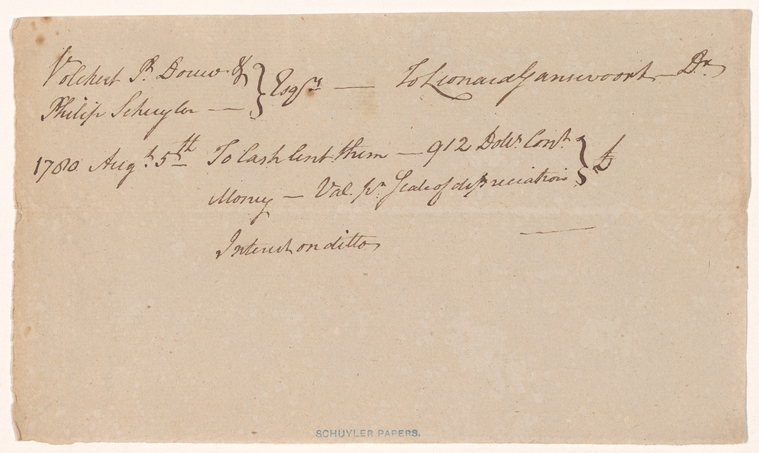 Volckert P. Douw &
Philip Schuyler — } Esqrs — To Leonard Gansevoort Dr.
1780 Augt. 5th To Cash lent them — 912 Dolrs. Contl.
Money — Val. pr. Scale of depreciation } £
Interest on ditto
SCHUYLER PAPERS.